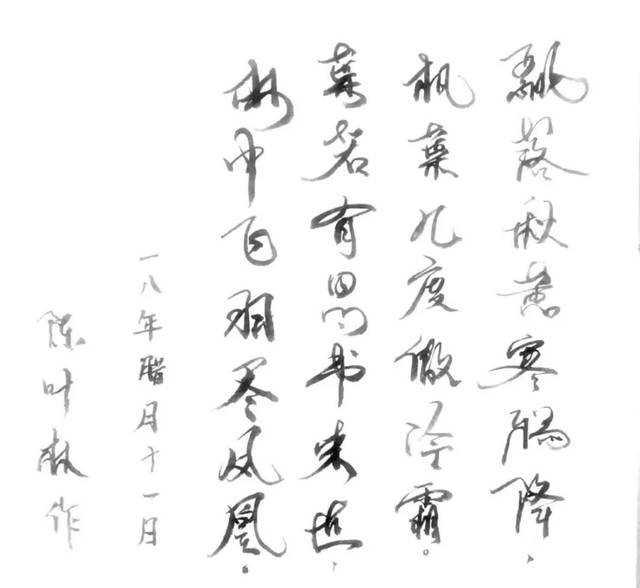 飘落秋黄寒降，
枫葉几度傲冷霜。
葉若有书来世，
中百羽尽凤凰。
一八年腊月十一日
陈叶林作